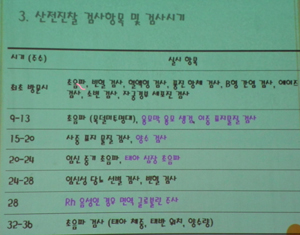 3. 산전진찰 검사항목 및 검사시기
시기 (주수) 실시 항목
최초 방문시 초음파, 빈혈 검사, 혈액형 검사, 풍진 항체 검사, B형 간염 검사, 에이즈
검사, 소변 검사, 자궁경부 세포진 검사
9-13 초음파 (목덜미투명대), 융모막 융모 생검, 이중 표지물질 검사
15-20 사중 표지 물질 검사, 양수 검사
20-24 임신 중기 초음파, 태아 심장 초음파
24-28 임신성 당뇨 선별 검사, 빈혈 검사
28 Rh 음성인 경우 면역 글로불린 주사
32-36 초음파 검사 (태아 체중, 태반 위치, 양수량)